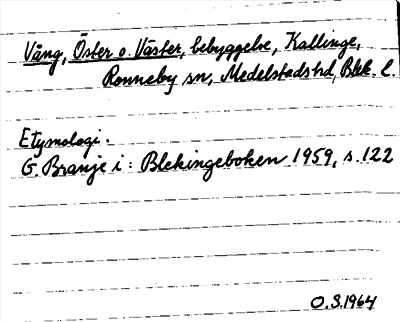 Vång, Öster o. Väster, bebyggelse, Kallinge,
Ronneby sn, Medelstads hd, Blek. l.
Etymologi.
G. Branje i: Blekingeboken 1959, s. 122
O.S. 1964